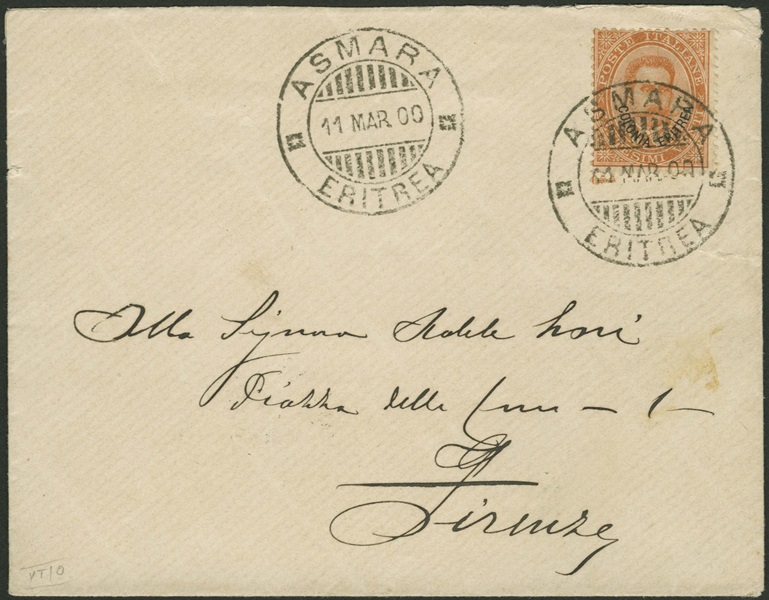 ASMARA
11 MAR 00
ERITREA
POSTE ITALIANE
COLONIA ERITREA
ASMARA
11 MAR 00
ERITREA
Alla Signora Adele
Piazza delle – 1 –
Firenze